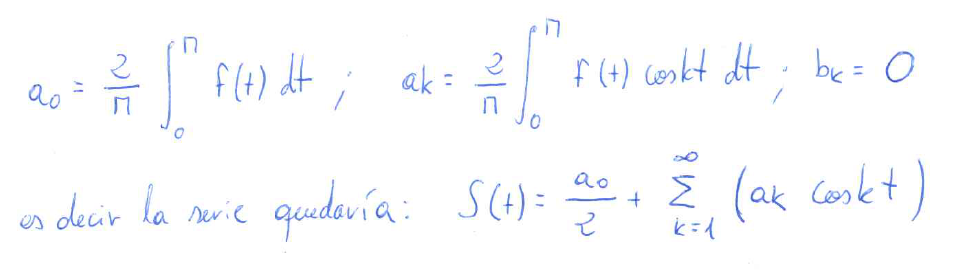 a₀ = 2/π ∫₀^π f(t) dt ; ak = 2/π ∫₀^π f(t) coskt dt ; bₖ = 0
es decir la serie quedaría: S(t) = a₀/2 + Σ_{k=1}^∞ (ak coskt)